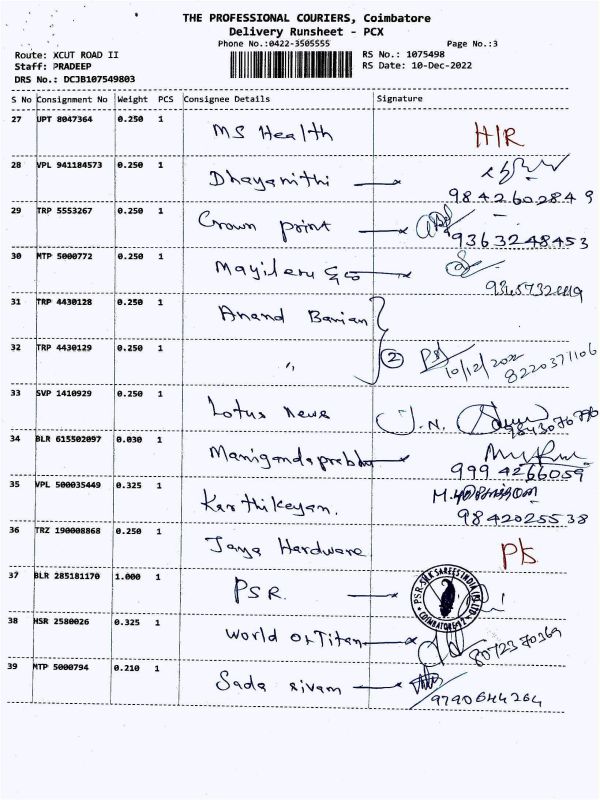 THE PROFESSIONAL COURIERS, Coimbatore
Delivery Runsheet - PCX
Phone No.:0422-3505555 Page No.:3
Route: XCUT ROAD II RS No.: 1075498
Staff: PRADEEP RS Date: 10-Dec-2022
DRS No.: DCJB107549803
S No Consignment No Weight PCS Consignee Details Signature
27 UPT 8047364 0.250 1 MS Health H/R
28 VPL 941184573 0.250 1 Dhayanithi
9842602849
29 TRP 5553267 0.250 1 Crown print
9363248453
30 MTP 5000772 0.250 1 Mayileru & co
31 TRP 4430128 0.250 1 Anand Banian
32 TRP 4430129 0.250 1 〃 2 10/12/2022
8220371106
33 SVP 1410929 0.250 1 Lotus news J.N.
34 BLR 615502097 0.030 1 Manigandaprabhu
9994266059
35 VPL 500035449 0.325 1 Karthikeyan.
9842025538
36 TRZ 190008868 0.250 1 Jaya Hardware P/s
37 BLR 285181170 1.000 1 PSR. P.S.R. SILK SAREES INDIA (P) LTD COIMBATORE-12
38 HSR 2580026 0.325 1 World of Titan
8072370369
39 MTP 5000794 0.210 1 Sada sivam
9790644264